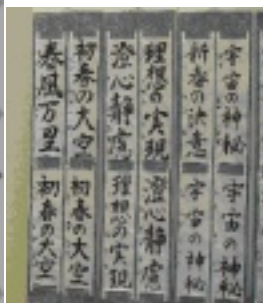 宇宙の神秘
宇宙の神秘
新春の決意
宇宙の神秘
理想の実現
澄心静慮
澄心静慮
理想の実現
初春の大空
初春の大空
春風万里
初春の大空